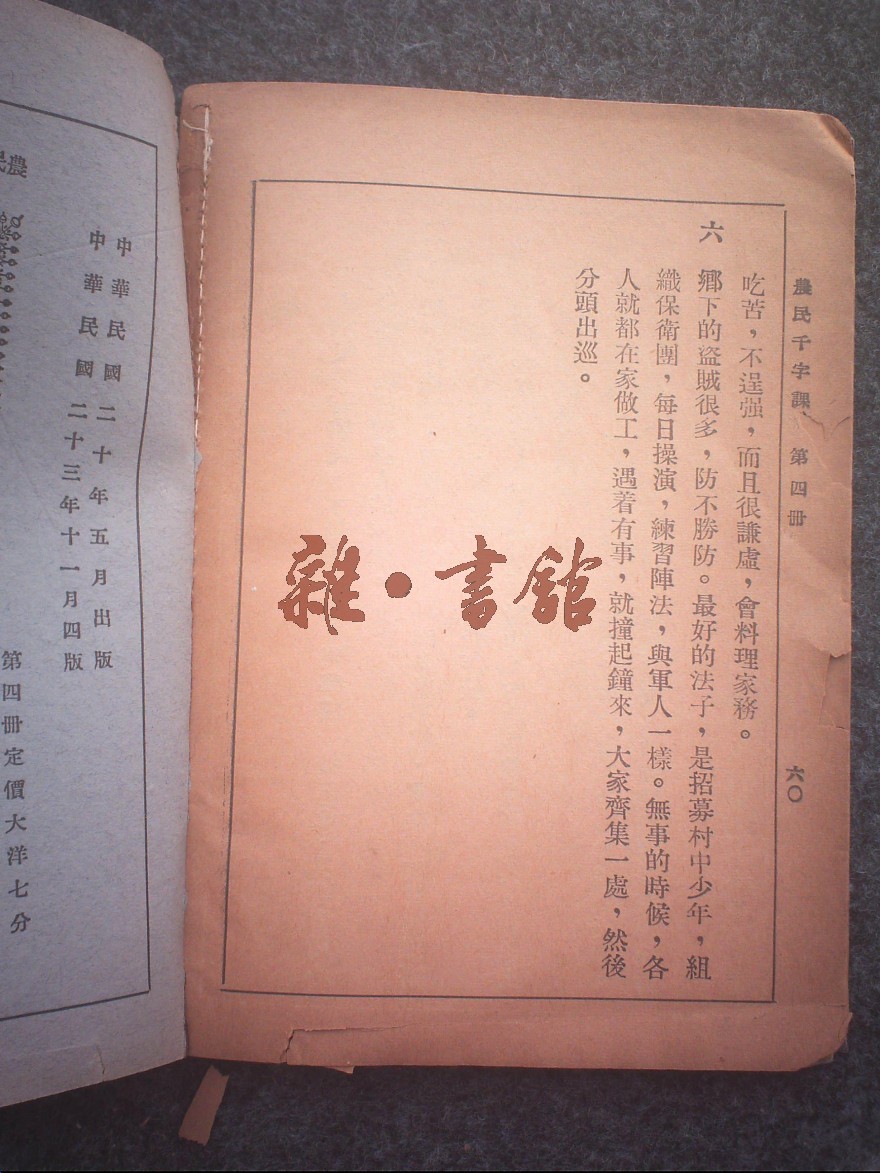 農民千字課 第四冊 六〇
吃苦，不逞强，而且很謙虛，會料理家務。
六 鄉下的盜賊很多，防不勝防。最好的法子，是招募村中少年，組
織保衛團，每日操演，練習陣法，與軍人一樣。無事的時候，各
人就都在家做工，遇着有事，就撞起鐘來，大家齊集一處，然後
分頭出巡。
雜·書館
中華民國二十年五月出版
中華民國二十三年十一月四版
農民
第四冊定價大洋七分